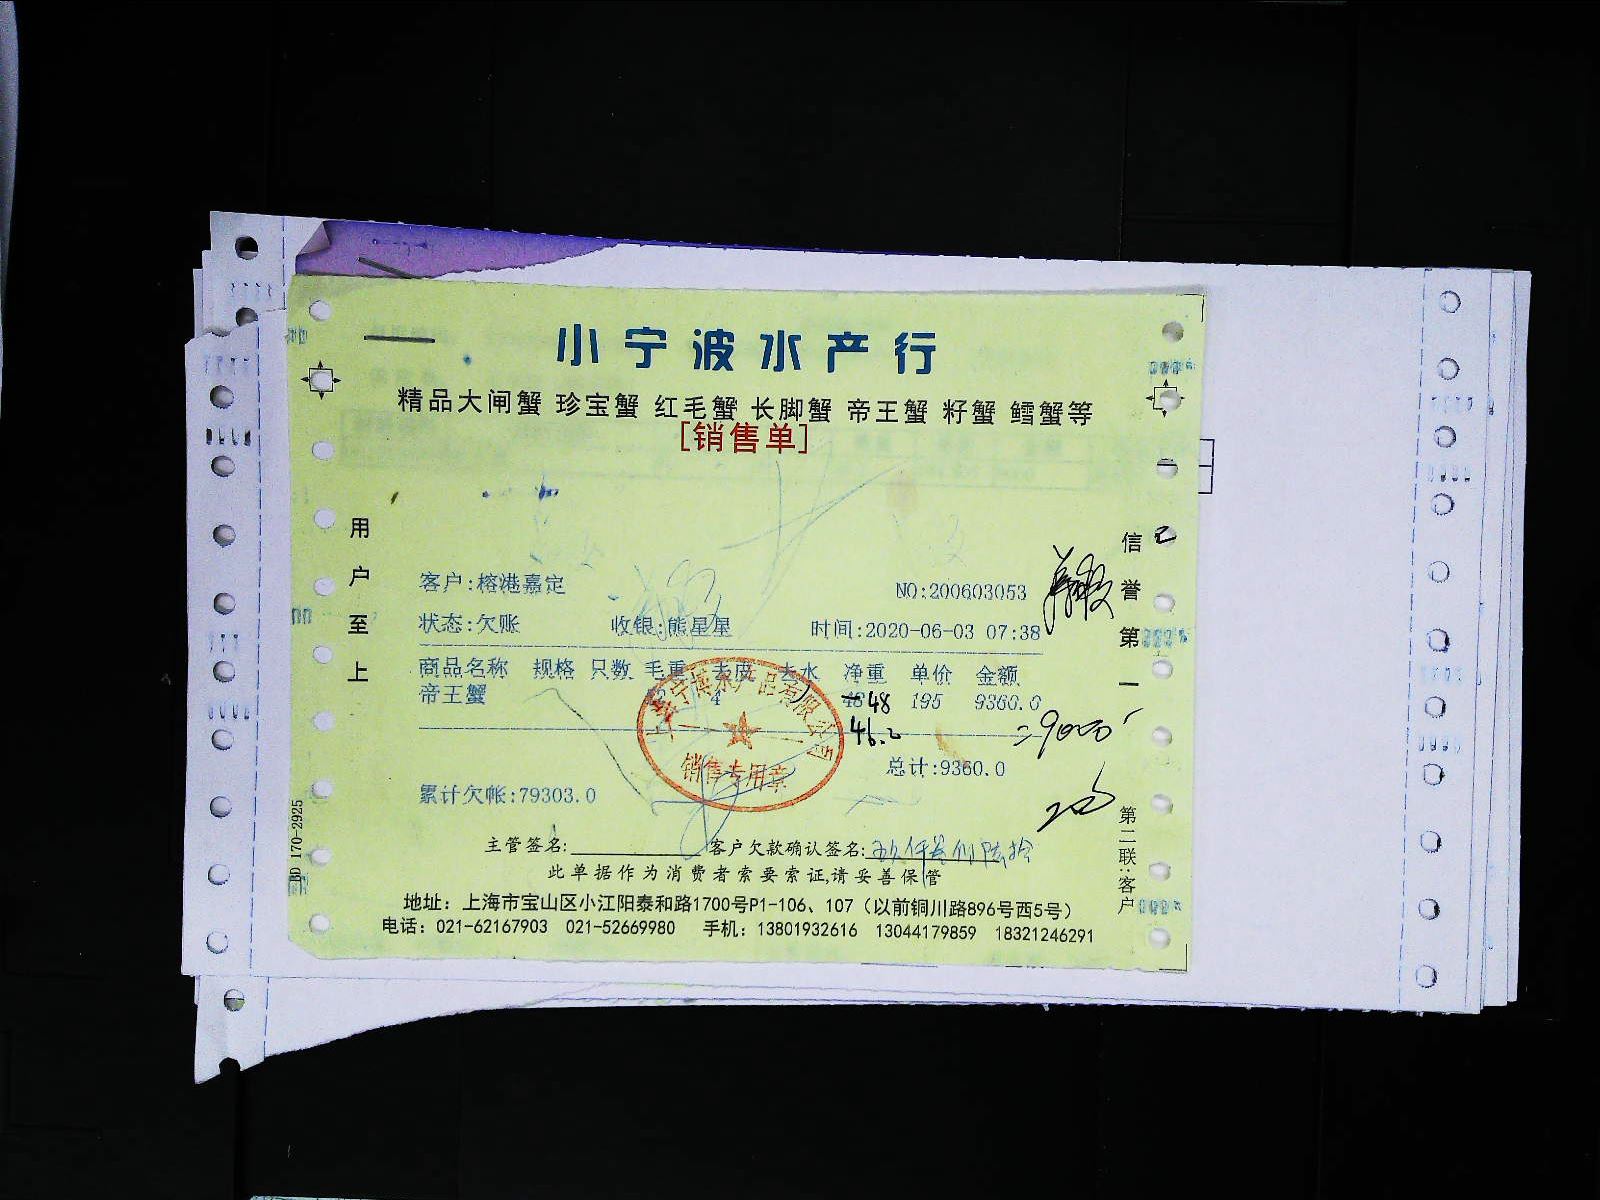 小宁波水产行
精品大闸蟹 珍宝蟹 红毛蟹 长脚蟹 帝王蟹 籽蟹 鳕蟹等
[销售单]
用户至上
信誉第一
客户:榕港嘉定 NO:200603053
状态:欠账 收银:熊星星 时间:2020-06-03 07:38
商品名称 规格 只数 毛重 去皮 去水 净重 单价 金额
帝王蟹 4 48 195 9360.0
48
46.2 =9000
总计:9360.0
累计欠帐:79303.0
销售专用章
主管签名: 客户欠款确认签名:
此单据作为消费者索要索证,请妥善保管
地址：上海市宝山区小江阳泰和路1700号P1-106、107（以前铜川路896号西5号）
电话：021-62167903 021-52669980 手机：13801932616 13044179859 18321246291
第二联:客户
BD 170-2925